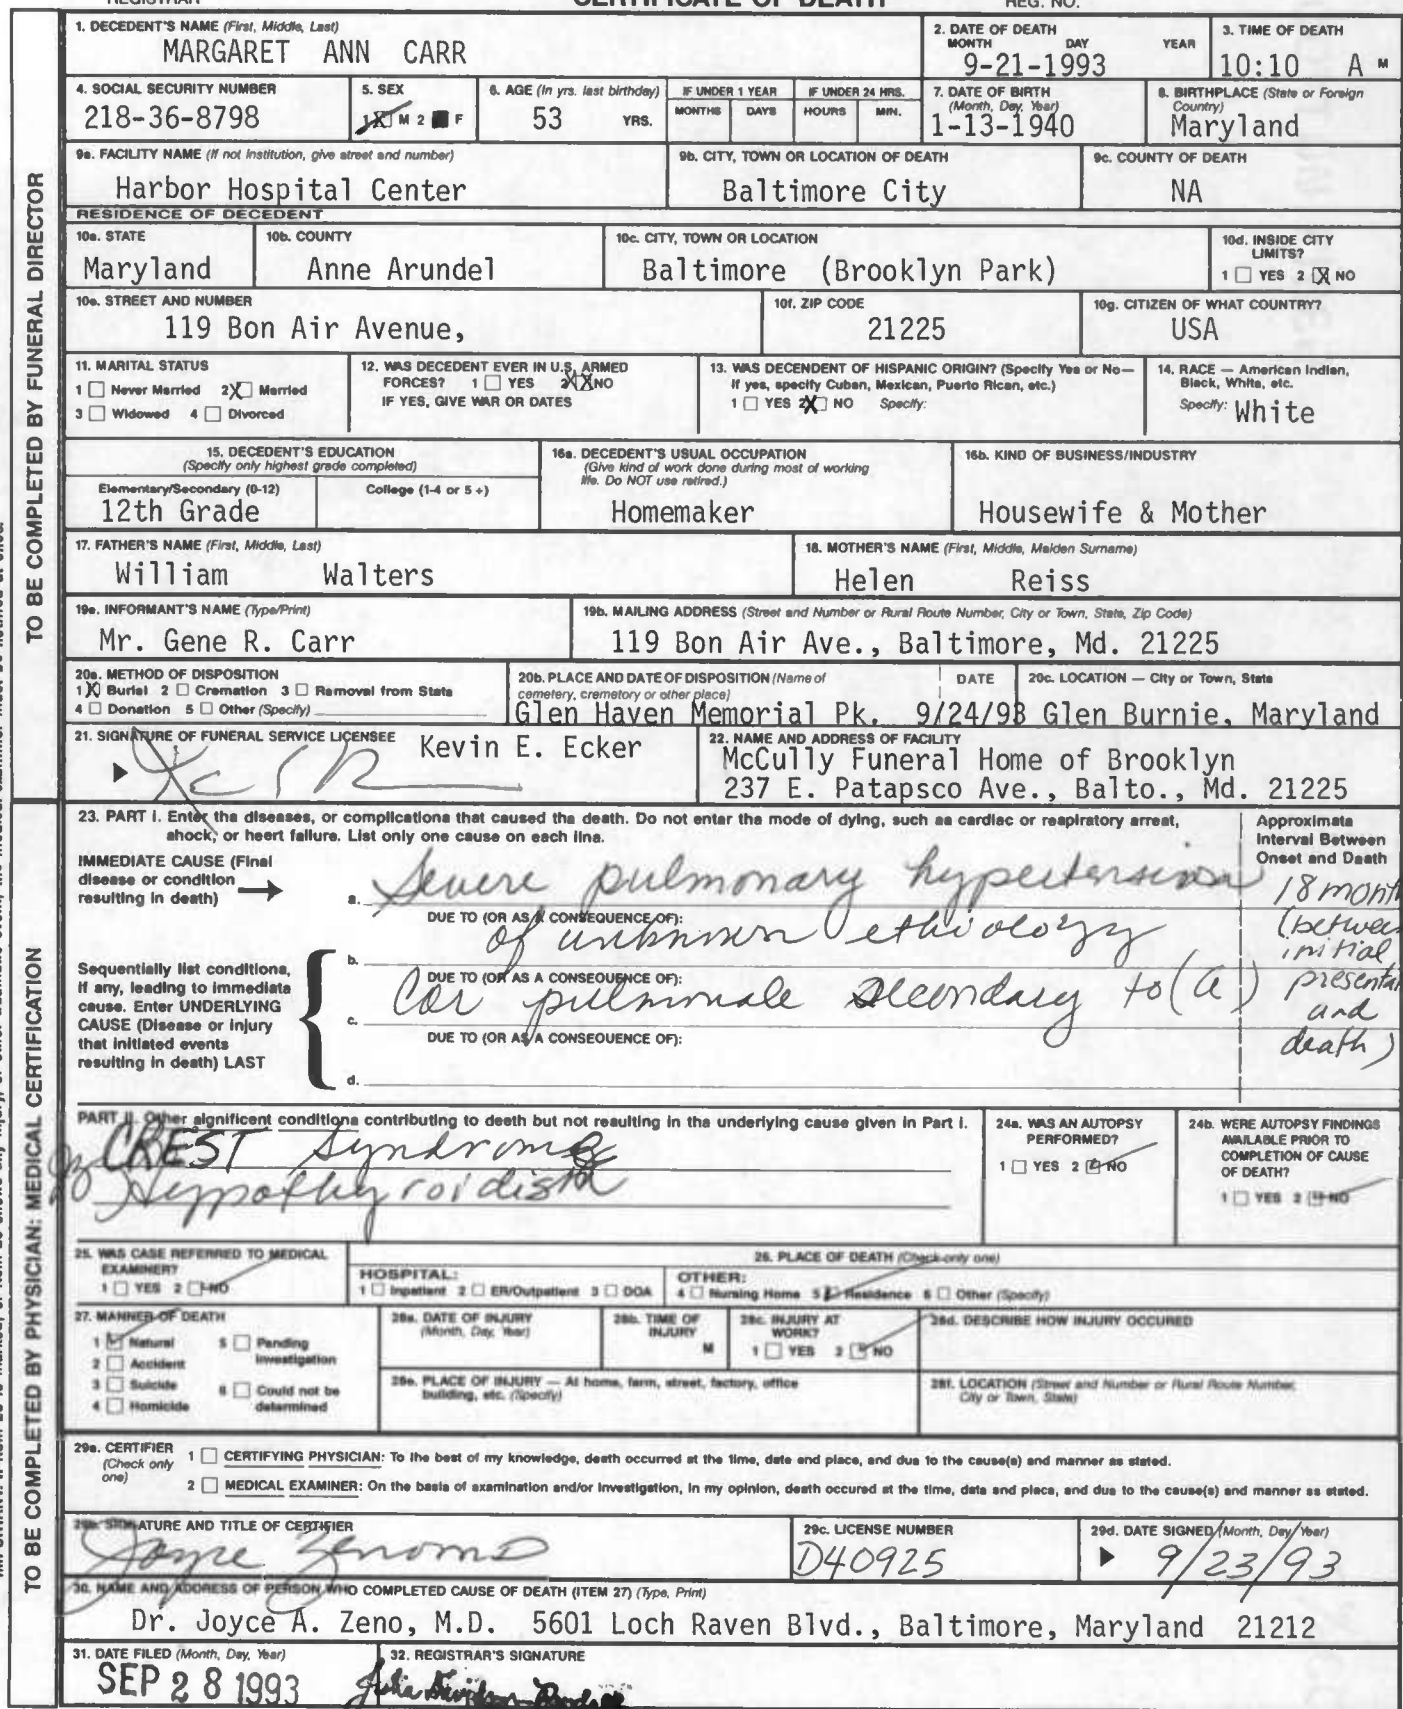 REGISTRAR CERTIFICATE OF DEATH REG. NO.
TO BE COMPLETED BY FUNERAL DIRECTOR
1. DECEDENT'S NAME (First, Middle, Last)
MARGARET ANN CARR
2. DATE OF DEATH
MONTH DAY YEAR
9-21-1993
3. TIME OF DEATH
10:10 A M
4. SOCIAL SECURITY NUMBER
218-36-8798
5. SEX
1 X M 2 F
6. AGE (In yrs. last birthday)
53 YRS.
IF UNDER 1 YEAR
MONTHS DAYS
IF UNDER 24 HRS.
HOURS MIN.
7. DATE OF BIRTH
(Month, Day, Year)
1-13-1940
8. BIRTHPLACE (State or Foreign
Country)
Maryland
9a. FACILITY NAME (If not institution, give street and number)
Harbor Hospital Center
9b. CITY, TOWN OR LOCATION OF DEATH
Baltimore City
9c. COUNTY OF DEATH
NA
RESIDENCE OF DECEDENT
10a. STATE
Maryland
10b. COUNTY
Anne Arundel
10c. CITY, TOWN OR LOCATION
Baltimore (Brooklyn Park)
10d. INSIDE CITY
LIMITS?
1 ☐ YES 2 X NO
10e. STREET AND NUMBER
119 Bon Air Avenue,
10f. ZIP CODE
21225
10g. CITIZEN OF WHAT COUNTRY?
USA
11. MARITAL STATUS
1 ☐ Never Married 2 X Married
3 ☐ Widowed 4 ☐ Divorced
12. WAS DECEDENT EVER IN U.S. ARMED
FORCES? 1 ☐ YES 2 X NO
IF YES, GIVE WAR OR DATES
13. WAS DECENDENT OF HISPANIC ORIGIN? (Specify Yes or No—
If yes, specify Cuban, Mexican, Puerto Rican, etc.)
1 ☐ YES 2 X NO Specify:
14. RACE — American Indian,
Black, White, etc.
Specify: White
15. DECEDENT'S EDUCATION
(Specify only highest grade completed)
Elementary/Secondary (0-12) College (1-4 or 5 +)
12th Grade
16a. DECEDENT'S USUAL OCCUPATION
(Give kind of work done during most of working
life. Do NOT use retired.)
Homemaker
16b. KIND OF BUSINESS/INDUSTRY
Housewife & Mother
17. FATHER'S NAME (First, Middle, Last)
William Walters
18. MOTHER'S NAME (First, Middle, Maiden Surname)
Helen Reiss
19a. INFORMANT'S NAME (Type/Print)
Mr. Gene R. Carr
19b. MAILING ADDRESS (Street and Number or Rural Route Number, City or Town, State, Zip Code)
119 Bon Air Ave., Baltimore, Md. 21225
20a. METHOD OF DISPOSITION
1 X Burial 2 ☐ Cremation 3 ☐ Removal from State
4 ☐ Donation 5 ☐ Other (Specify)
20b. PLACE AND DATE OF DISPOSITION (Name of
cemetery, crematory or other place)
DATE
Glen Haven Memorial Pk. 9/24/93
20c. LOCATION — City or Town, State
Glen Burnie, Maryland
21. SIGNATURE OF FUNERAL SERVICE LICENSEE Kevin E. Ecker
22. NAME AND ADDRESS OF FACILITY
McCully Funeral Home of Brooklyn
237 E. Patapsco Ave., Balto., Md. 21225
TO BE COMPLETED BY PHYSICIAN: MEDICAL CERTIFICATION
23. PART I. Enter the diseases, or complications that caused the death. Do not enter the mode of dying, such as cardiac or respiratory arrest,
shock, or heart failure. List only one cause on each line.
Approximate
Interval Between
Onset and Death
IMMEDIATE CAUSE (Final
disease or condition
resulting in death)
a. Severe pulmonary hypertension
DUE TO (OR AS A CONSEQUENCE OF):
of unknown ethiology
b.
DUE TO (OR AS A CONSEQUENCE OF):
Cor pulmonale secondary to (a)
c.
DUE TO (OR AS A CONSEQUENCE OF):
d.
18 month
(between
initial
presenta
and
death)
Sequentially list conditions,
if any, leading to immediate
cause. Enter UNDERLYING
CAUSE (Disease or injury
that initiated events
resulting in death) LAST
PART II. Other significant conditions contributing to death but not resulting in the underlying cause given in Part I.
CREST Syndrome
Hypothyroidism
24a. WAS AN AUTOPSY
PERFORMED?
1 ☐ YES 2 ☑ NO
24b. WERE AUTOPSY FINDINGS
AVAILABLE PRIOR TO
COMPLETION OF CAUSE
OF DEATH?
1 ☐ YES 2 ☑ NO
25. WAS CASE REFERRED TO MEDICAL
EXAMINER?
1 ☐ YES 2 ☑ NO
26. PLACE OF DEATH (Check only one)
HOSPITAL:
1 ☐ Inpatient 2 ☐ ER/Outpatient 3 ☐ DOA
OTHER:
4 ☐ Nursing Home 5 ☑ Residence 6 ☐ Other (Specify)
27. MANNER OF DEATH
1 ☑ Natural 5 ☐ Pending
Investigation
2 ☐ Accident
3 ☐ Suicide 6 ☐ Could not be
determined
4 ☐ Homicide
28a. DATE OF INJURY
(Month, Day, Year)
28b. TIME OF
INJURY
M
28c. INJURY AT
WORK?
1 ☐ YES 2 ☑ NO
28d. DESCRIBE HOW INJURY OCCURED
28e. PLACE OF INJURY — At home, farm, street, factory, office
building, etc. (Specify)
28f. LOCATION (Street and Number or Rural Route Number,
City or Town, State)
29a. CERTIFIER
(Check only
one)
1 ☐ CERTIFYING PHYSICIAN: To the best of my knowledge, death occurred at the time, date and place, and due to the cause(s) and manner as stated.
2 ☐ MEDICAL EXAMINER: On the basis of examination and/or investigation, in my opinion, death occured at the time, date and place, and due to the cause(s) and manner as stated.
29b. SIGNATURE AND TITLE OF CERTIFIER
Joyce Zeno MD
29c. LICENSE NUMBER
D40925
29d. DATE SIGNED (Month, Day, Year)
9/23/93
30. NAME AND ADDRESS OF PERSON WHO COMPLETED CAUSE OF DEATH (ITEM 27) (Type, Print)
Dr. Joyce A. Zeno, M.D. 5601 Loch Raven Blvd., Baltimore, Maryland 21212
31. DATE FILED (Month, Day, Year)
SEP 28 1993
32. REGISTRAR'S SIGNATURE